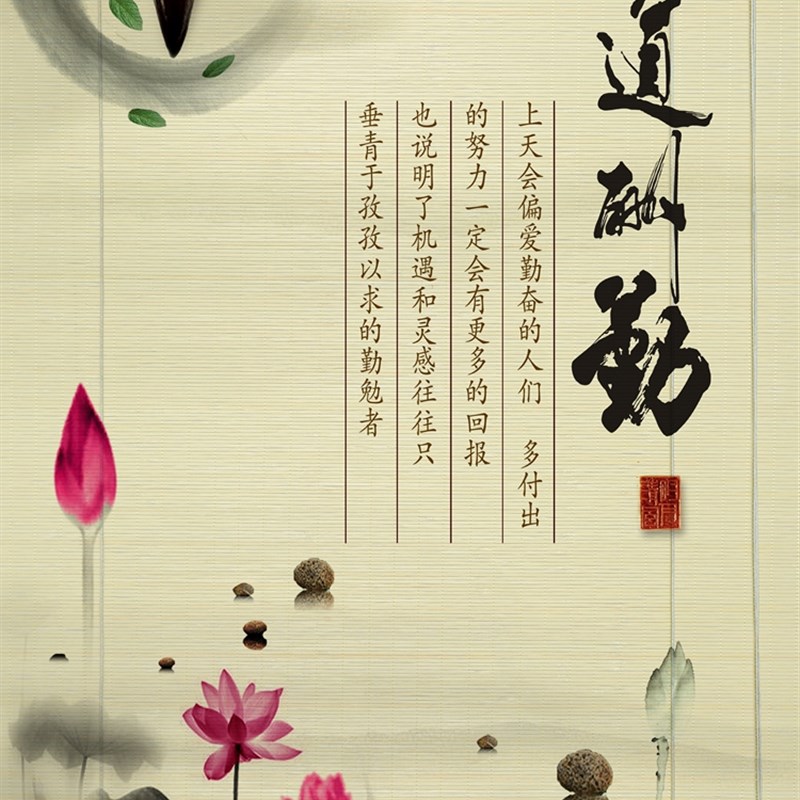 道酬勤
上天会偏爱勤奋的人们 多付出
的努力一定会有更多的回报
也说明了机遇和灵感往往只
垂青于孜孜以求的勤勉者